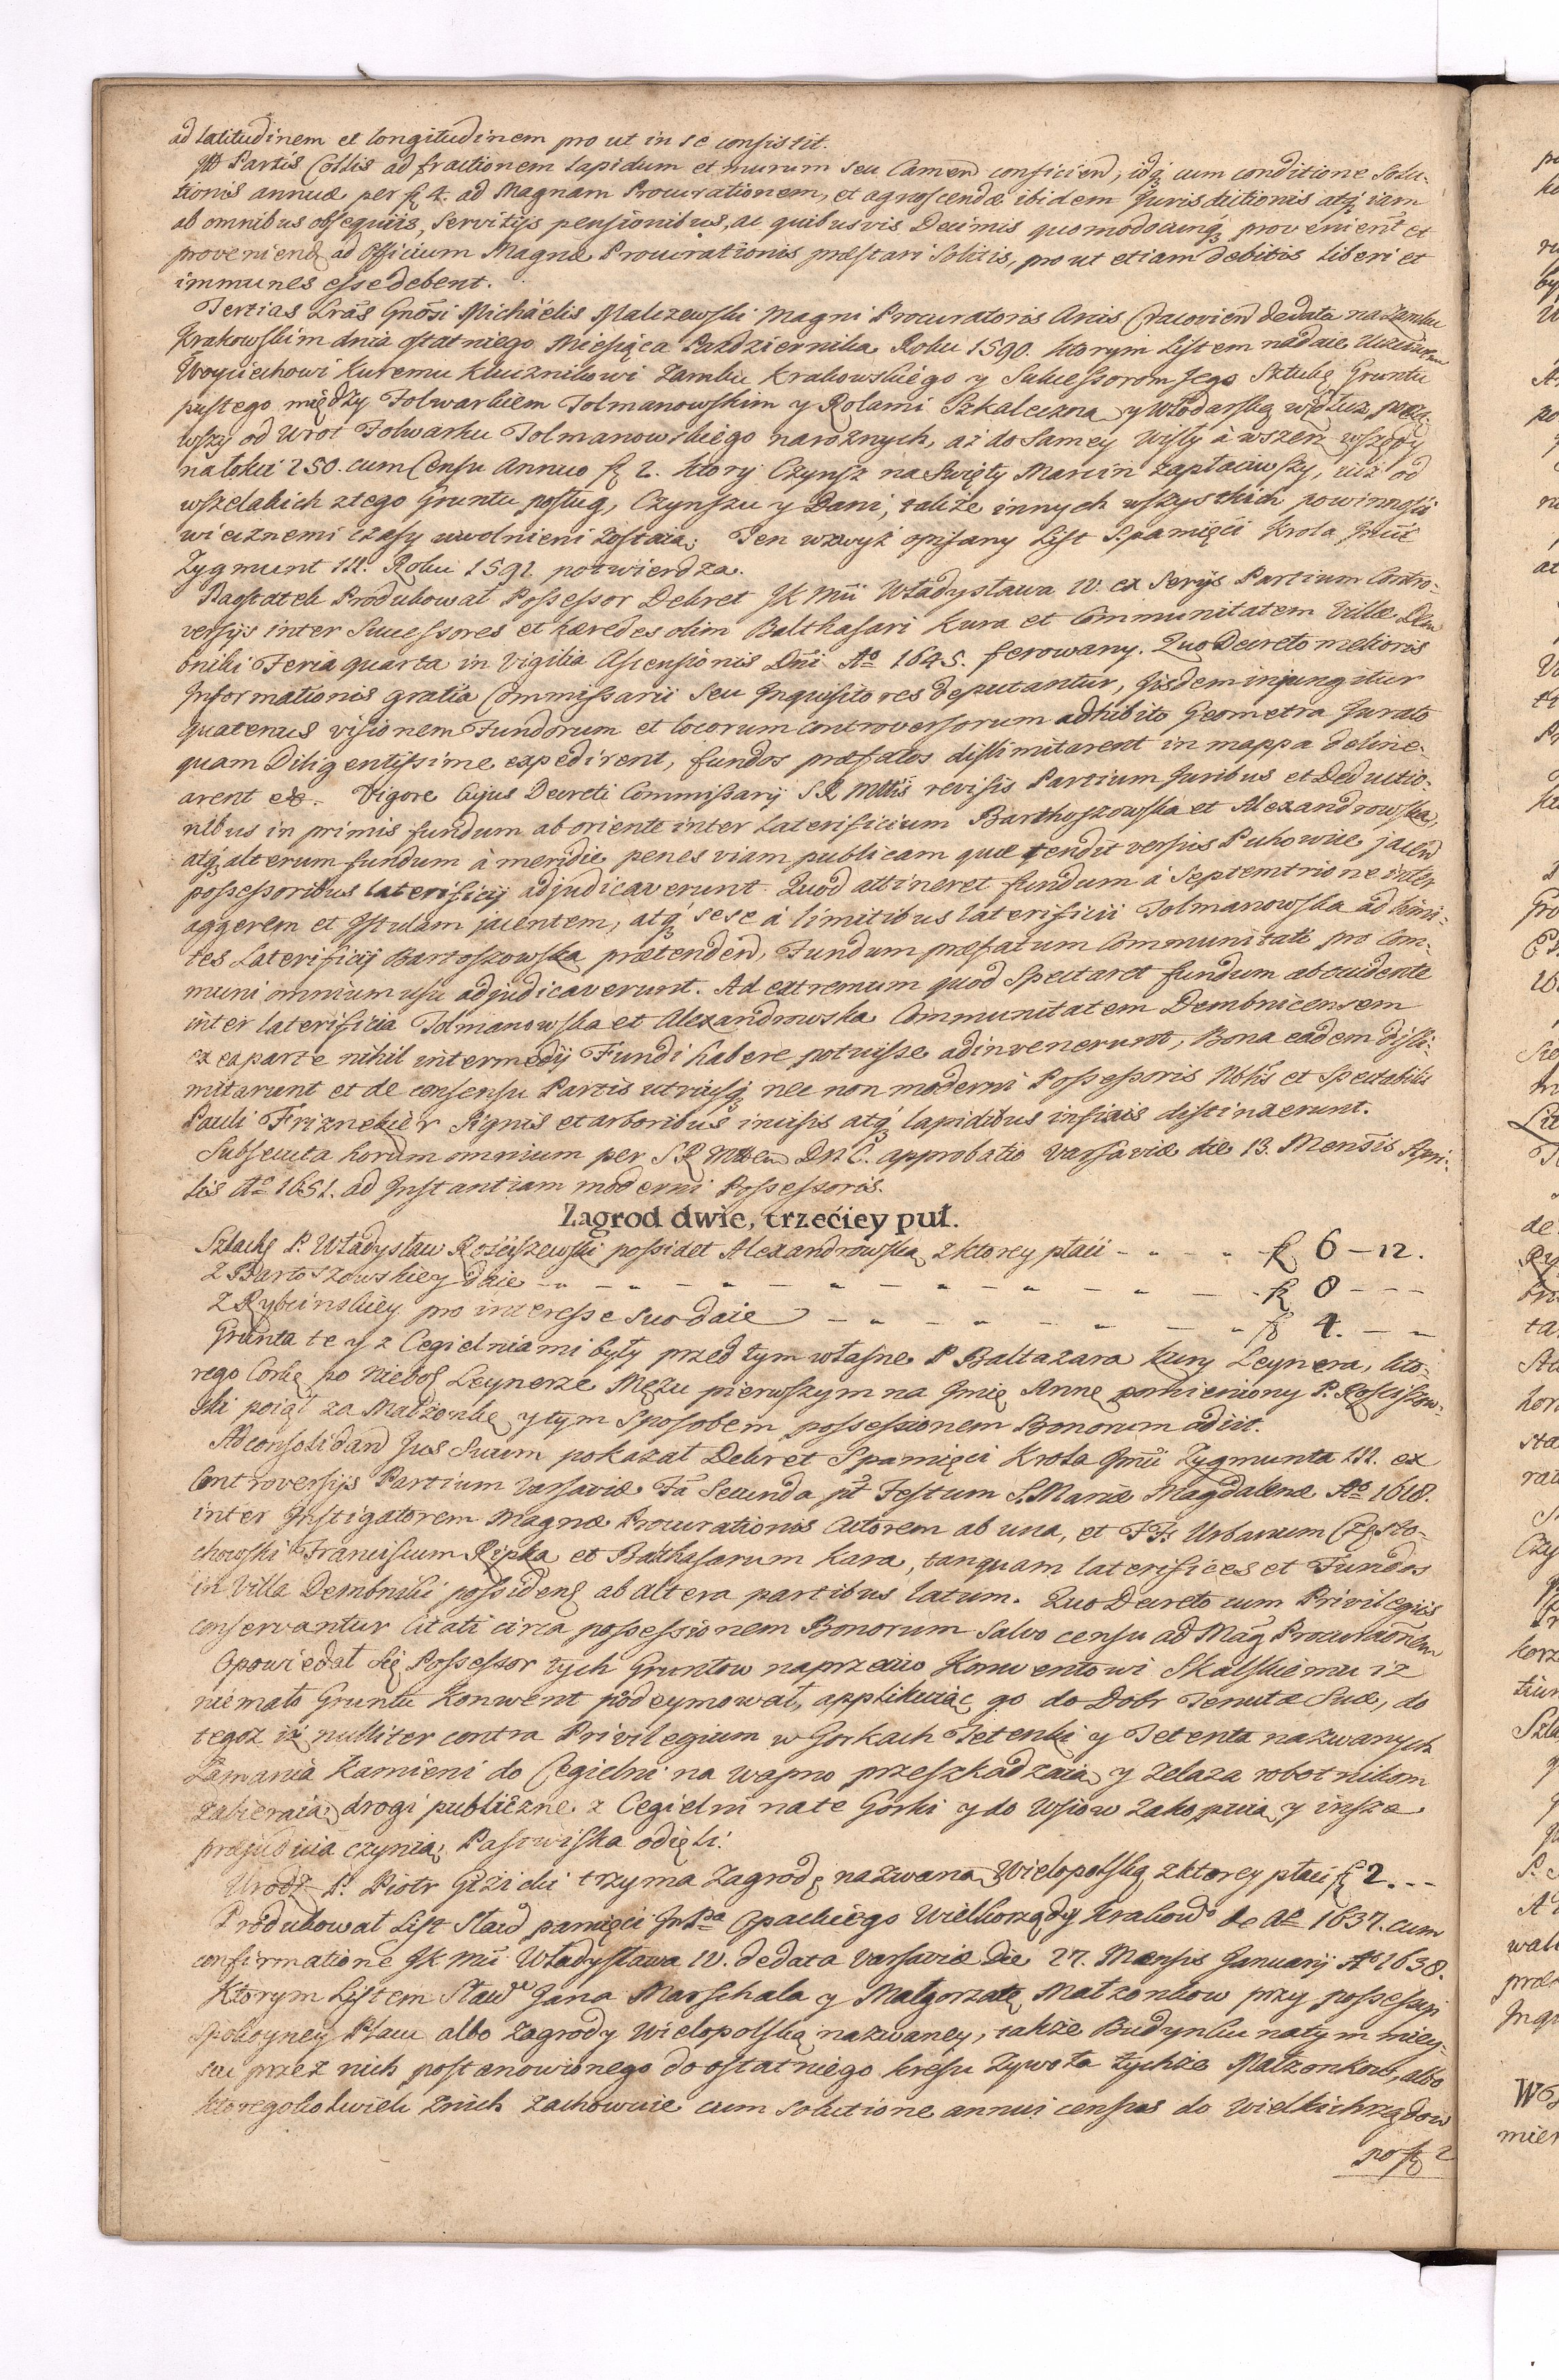 ad latitudinem et longitudinem pro ut in se consistit.
Partis Collis ad fractionem lapidum et murum seu Camen conficien, idq cum conditione Solu-
tionis annuæ per f 4. ad Magnam Procurationem, et agnoscendæ ibidem Jurisdictionis atq iam
ab omnibus obsequiis, Servitijs pensionibus, ac quibusvis Decimis quomodocunq provenient et
proveniend ad Officium Magnæ Procurationis præstari Solitis, pro ut etiam debitis liberi et
immunes esse debent.
Tertias Lras Gnosi Michaelis Malczewski Magni Procuratoris Arcis Cracovien de data na Zamku
Krakowskim dnia ostatniego Miesiąca Pazdziernika Roku 1590. ktorym Listem nadaie
Woyciechowi Kuremu Klucznikowi Zamku Krakowskiego y Sukcessorom Jego Sztukę Gruntu
pustego między Folwarkiem Tolmanowskim y Rolami Szkaleczną y Włodarską wdłuż, począ-
wszy od Wrot Folwarku Tolmanowskiego narożnych, aż do Samey Wisły à wszerz wszędy
na łokci 250. cum Censu Annuo f 2. ktory Czynsz na Swięty Marcin zapłaciwszy, iuż od
wszelakich z tego Gruntu posług, Czynszu y Dani, także innych wszystkich powinności
wiecznemi czasy uwolnieni zostaią. Ten wzwyż opisany List S. pamięci Krola Jmci
Zygmunt III. Roku 1591 potwierdza.
Naostatek Produkowal Possessor Dekret JK Mci Władysława IV. ex Serijs Partium Contro-
versijs inter Successores et hæredes olim Balthasari Kura et Communitatem Villæ Dem
bniki Feria quarta in Vigilia Ascensionis Dni Ao 1645. ferowany. Quo Decreto melioris
Informationis gratia Commissarii Seu Inquisitores deputantur, Jisdem injungitur
quatenus visionem Fundorum et locorum controversorum adhibito Geometra Jurato
quam Diligentissime expedirent, fundos præfatos dislimitarent in mappa deline-
arent etc. Vigore Cujus Decreti Commissarij S R Mttis revisis Partium Juribus et Deductio-
nibus in primis fundum ab oriente inter Laterificium Barthoszowska et Alexandrowska,
atq alterum fundum à meridie penes viam publicam quæ tendit versus Puhowice jacen
possessoribus laterificij adjudicaverunt. Quod attineret fundum à Septemtrione inter
aggerem et Istulam jacentem, atq sese à limitibus laterificii Tolmanowska ad limi-
tes Laterificij Bartoszowska prætenden, Fundum præfatum Communitati pro Com-
muni omnium usu adjudicaverunt. Ad extremum quod Spectaret fundum ab occidente
inter laterificia Tolmanowska et Alexandrowska Communitatem Dembnicensem
ex ea parte nihil intermedij Fundi habere potuisse adinvenerunt, Bona eadem disli-
mitarunt et de consensu Partis utriusq nec non moderni Possessoris Nblis et Spectabilis
Pauli Friznekier Signis et arboribus incisis atq lapidibus infixis distinxerunt.
Subsecuta horum omnium per S R Mttem DN C. approbatio Varsaviæ die 13. Mensis Apri-
lis Ao 1651. ad Instantiam moderni Possessoris.
Zagrod dwie, trzećiey puł.
Szlach P. Władysław Rościszewski possidet Alexandrowską z ktorey płaci - - - - f 6 - 12.
Z Bartoszowskiey daie - - - - - - - - - - - f 8 - - -
Z Rybcinskiey pro interesse suo daie - - - - - - - f 4. - -
Grunta te y z Cegielniami były przed tym własne P Baltazara Kury Leynera, kto-
rego Corkę po Niebos Leynerze Mężu pierwszym na Imię Annę pomieniony P. Roscisze-
ski poiął za Małżonkę y tym Sposobem possessionem Bonorum adiit.
Ad consolidand Jus Suum pokazał Dekret S pamięci Krola Jmci Zygmunta III. ex
Controversijs Partium Varsaviæ Fa Secunda pt Festum S. Mariæ Magdalenæ Ao 1618.
inter Instigatorem Magnæ Procurationis Actorem ab una, et FF: Urbanum Czesto-
chowski Franciscum Ripka et Balthasarum Kara, tanquam laterifices et Fundos
in Villa Dembniki possidens ab altera partibus latum. Quo Decreto cum Privilegiis
conservantur Citati circa possessionem Bonorum Salvo censu ad Mag Procuraonem
Opowiedał się Possessor tych Gruntow naprzeciw Konwentowi Skalskiemu iż
niemało Gruntu Konwent podeymował, applikuiąc go do Dobr Tenutæ Suæ, do
tegoż iż nulliter contra Privilegium w Gorkach Tetenki y Tetenta nazwanych
Łamania Kamieni do Cegielni na wapno przeszkadzaią y żelaza robotnikom
zabieraią, drogi publiczne z Cegielni na te Gorki y do Wsiow zakopuią y insze
præjudicia czynią, Pastwiska odięli.
Urodz P. Piotr Giżicki trzyma Zagrodę nazwaną Wielopolską z ktorey płaci f 2. - -
Produkował List Sław pamięci Jmpa Opackiego Wielkorządcy Krakows de Ao 1637. cum
confirmatione JK Mci Władysława IV. de data Varsaviæ Die 27. Mensis Januarij Ao 1638.
Ktorym Listem Sław Jana Marschala y Małgorzatę Małżonkow przy possessyi
spokoyney Placu albo Zagrody Wielopolską nazwaney, także Budynku na tym miey-
scu przez nich postanowionego do ostatniego kresu Żywota tychże Małżonkow, albo
ktoregokolwiek z nich zachowuie cum solutione annui census do Wielkichrządow
po f 2